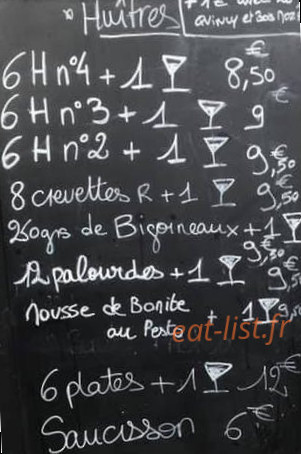 Huîtres
6 H n°4 + 1 8,50€
6 H n°3 + 1 9
6 H n°2 + 1 9,50
8 crevettes R + 1 9,50
250grs de Bigorneaux + 1
9,50
12 palourdes + 1 9,50
Mousse de Bonite + 1 9,50
au Pesto
eat-list.fr
6 plates + 1 12€
Saucisson 6€